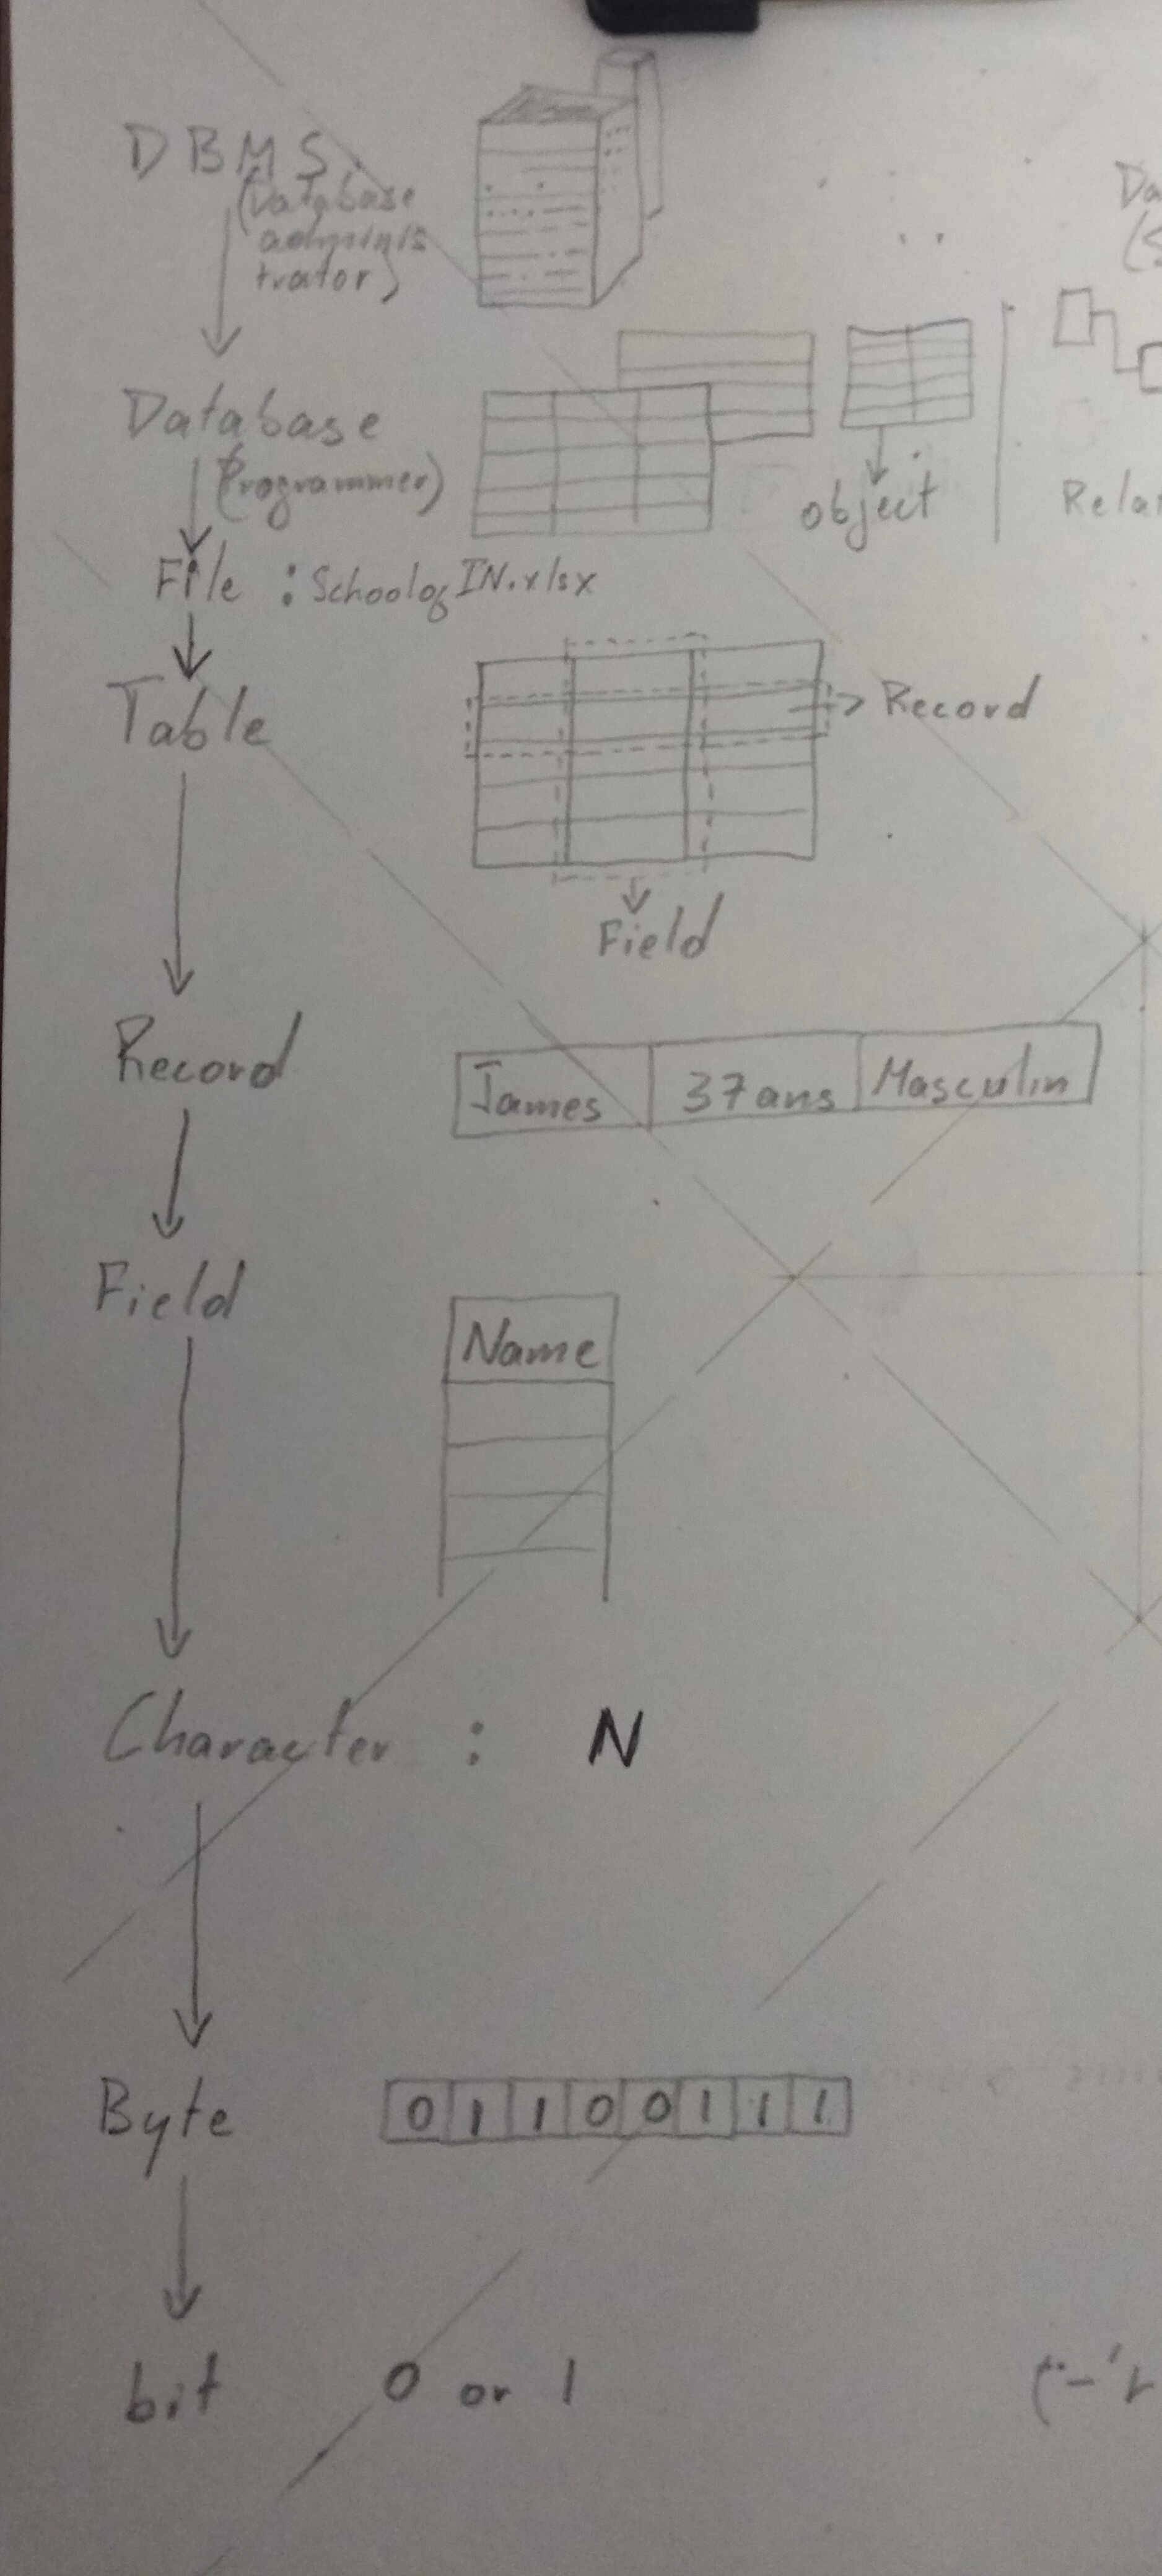 DBMS
(Database
adminis
trator)
Database
(Programmer)
object
File : SchoolofIN.xlsx
Table
Record
Field
Record
James 37ans Masculin
Field
Name
Character : N
Byte 0 1 1 0 0 1 1 1
bit 0 or 1